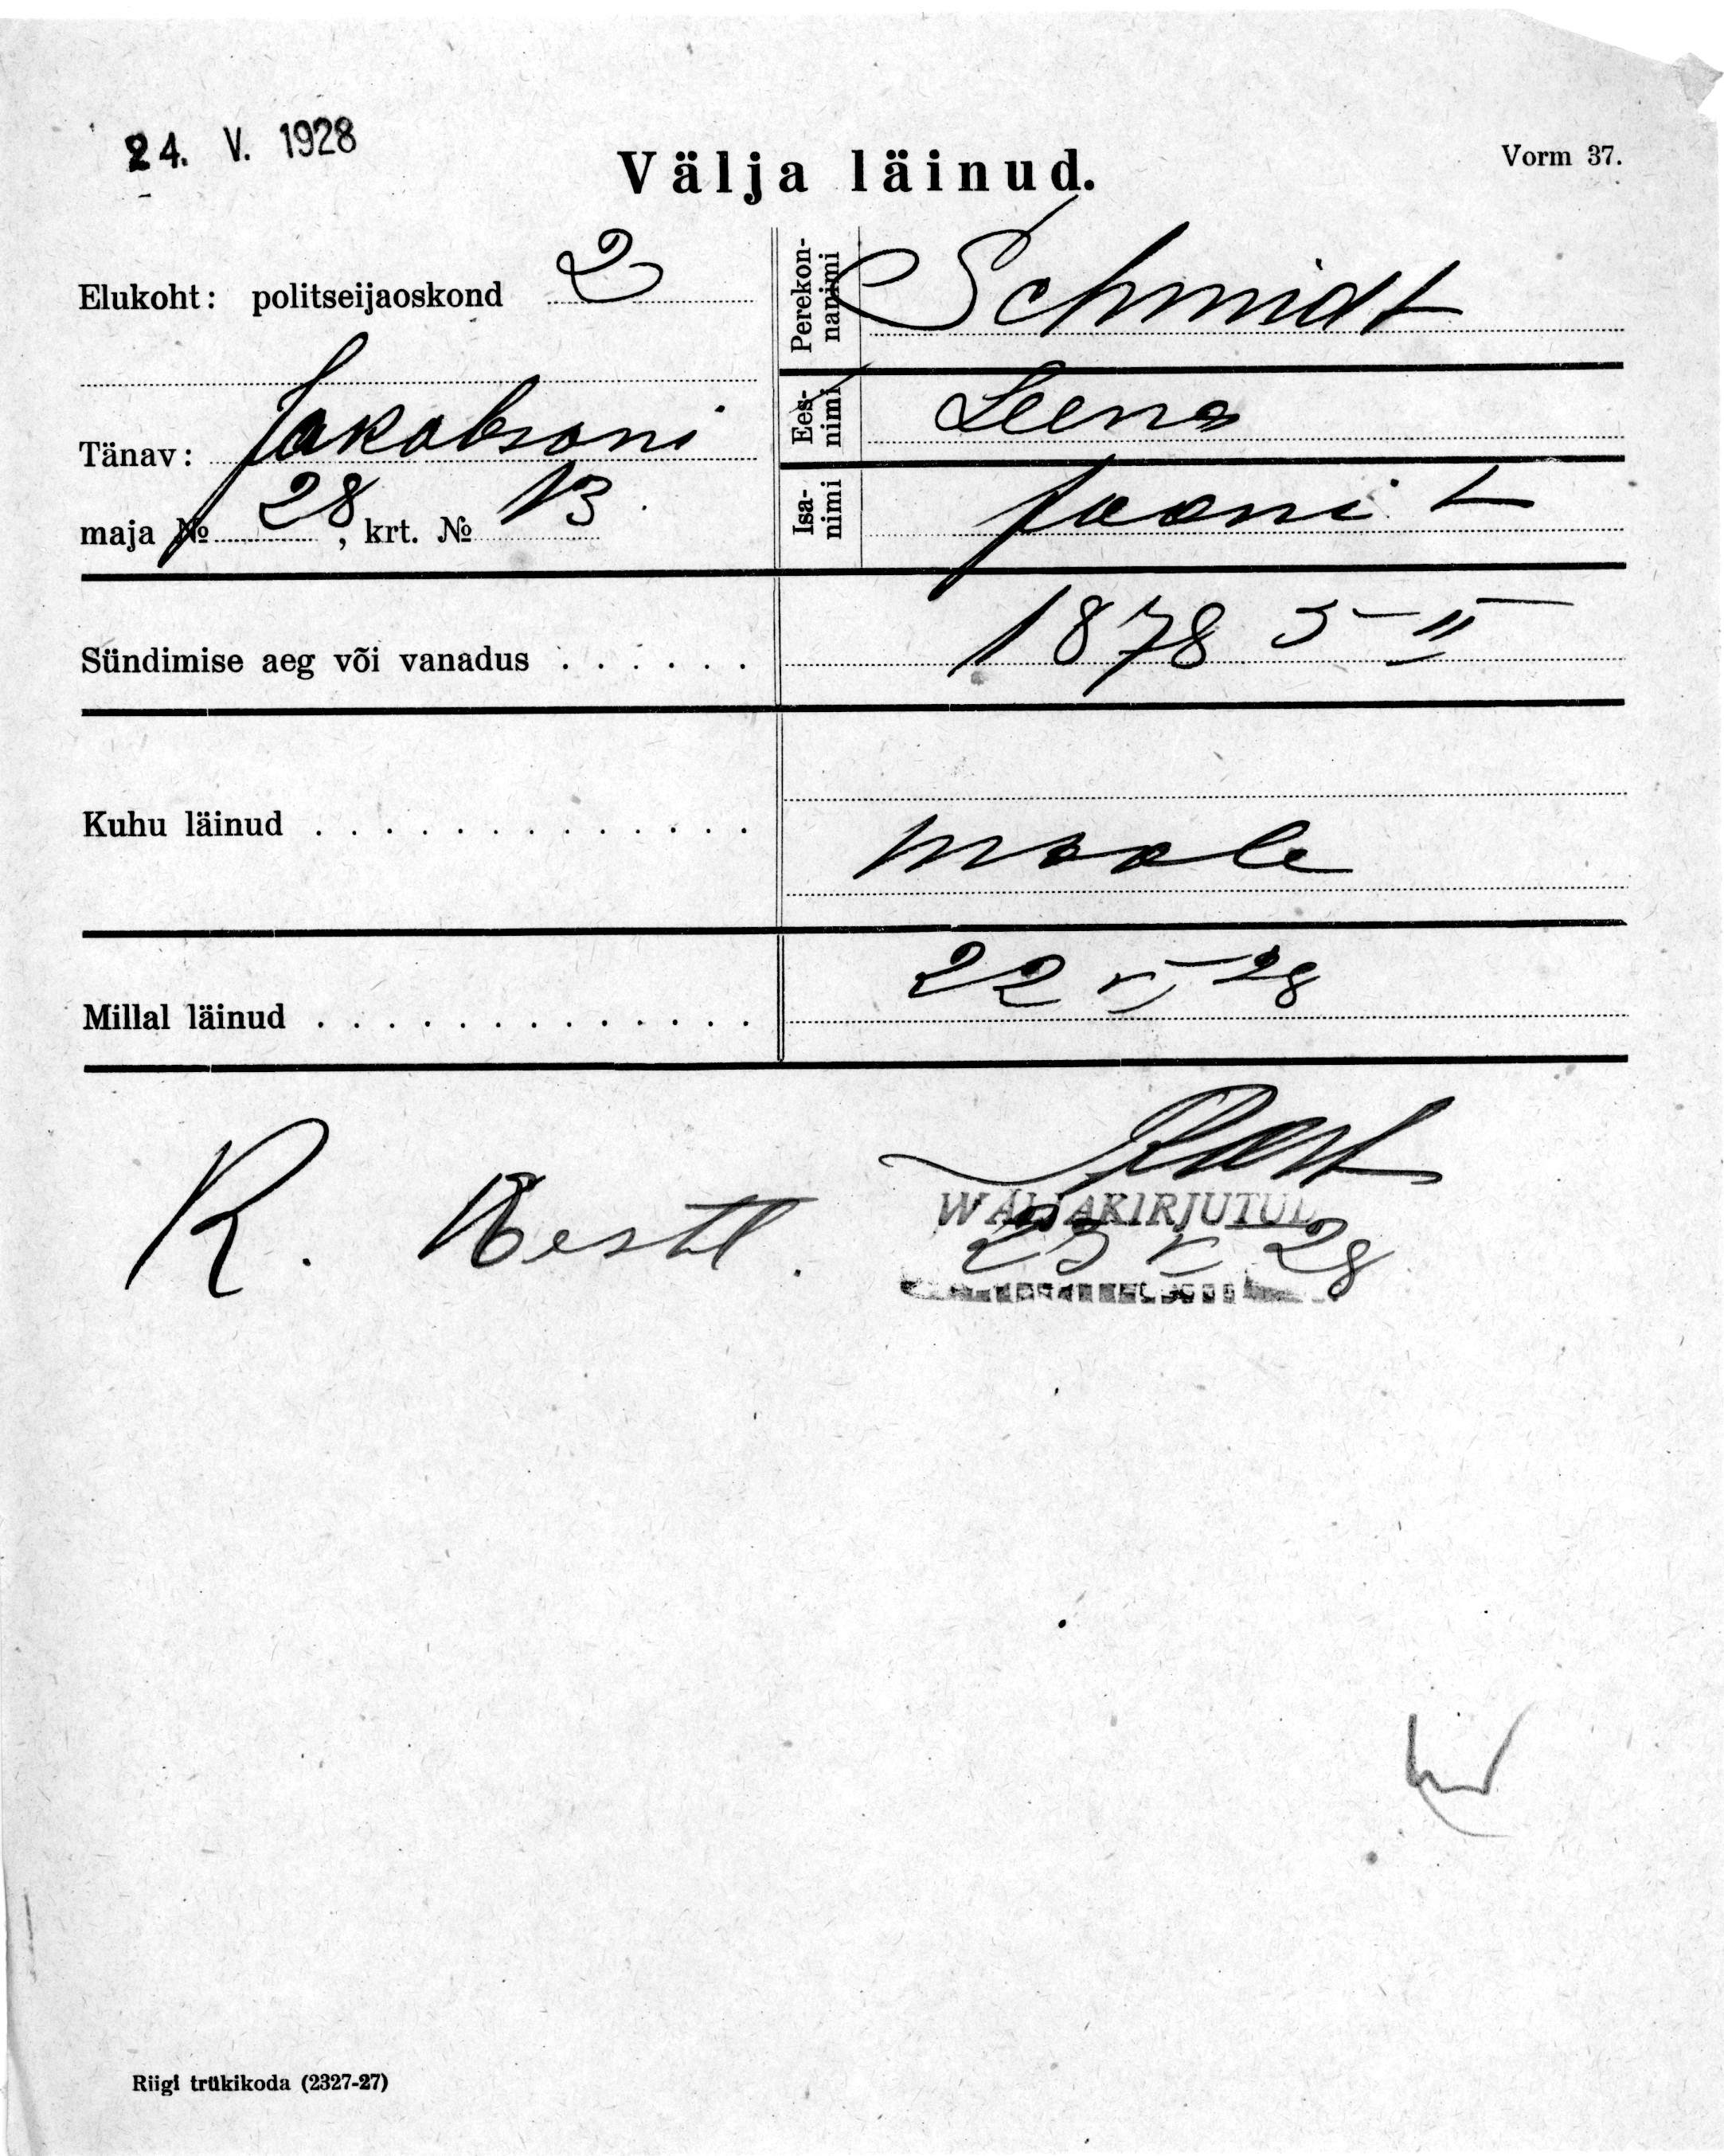 24. V. 1928
Välja läinud.
Vorm 37.
Elukoht: politseijaoskond 2
Tänav: Jakobsoni
maja № 28, krt. № 13.
Perekonnanimi Schmidt
Eesnimi Leena
Isanimi Jaani t
Sündimise aeg või vanadus . . . . . . 1878 5-II
Kuhu läinud . . . . . . . . . . . . . maale
Millal läinud . . . . . . . . . . . . . 22 V 28
R.
WÄLJAKIRJUTUD
23 V 28
Riigi trükikoda (2327-27)